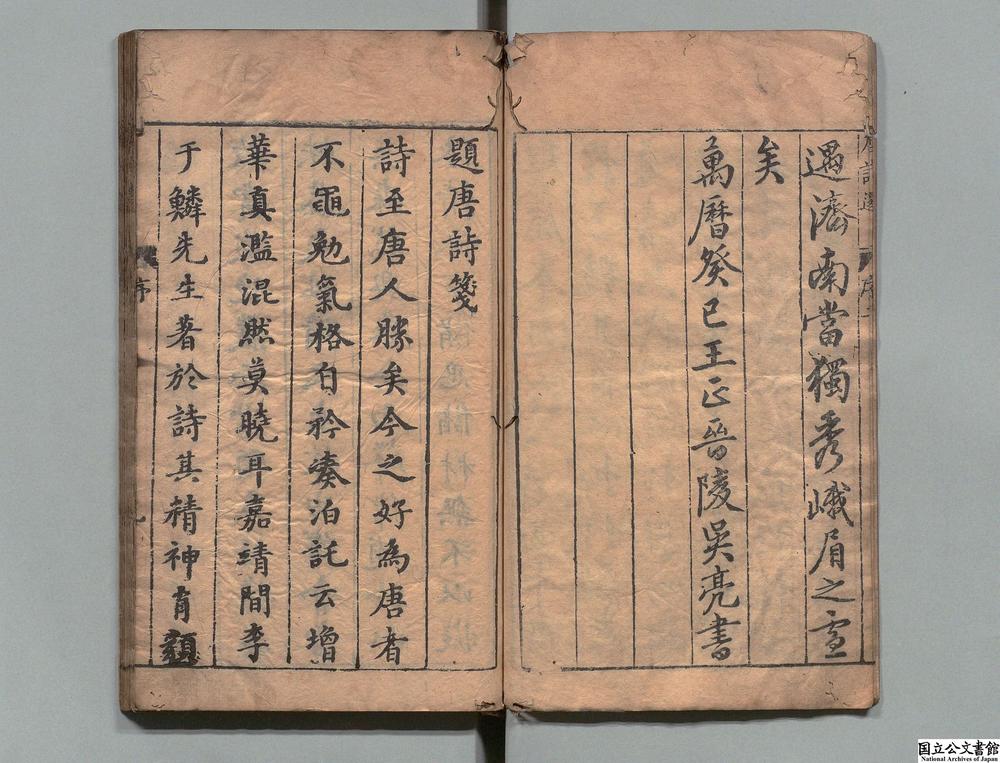 遇濟南當獨秀峨眉之雪
矣
萬曆癸巳王正晉陵吳亮書
題唐詩箋
詩至唐人勝矣今之好為唐者
不黽勉氣格白矜湊泊託云增
華真濫混然莫曉耳嘉靖間李
于鱗先生著於詩其精神有
序
国立公文書館
National Archives of Japan